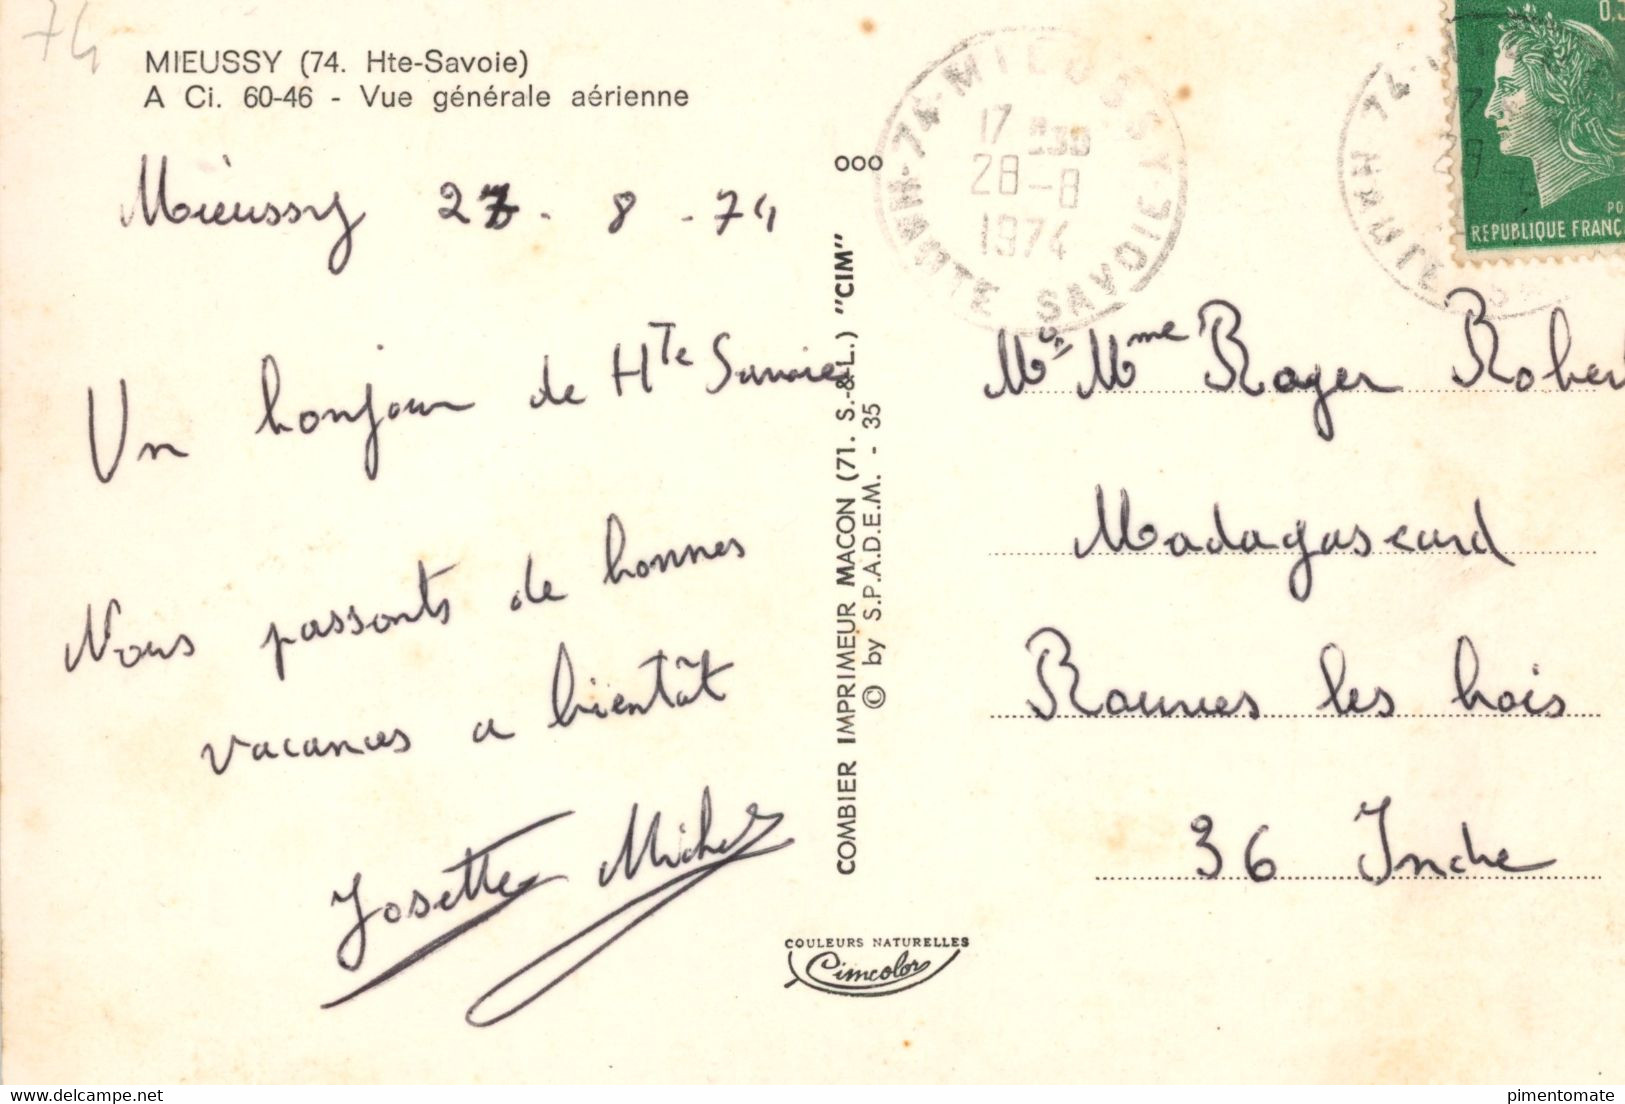 74
MIEUSSY (74. Hte-Savoie)
A Ci. 60-46 - Vue générale aérienne
Mieussy 27 - 8 - 74
Un bonjour de Hte Savoie
Nous passonts de bonnes
vacances a bientôt
Josette Michel
COMBIER IMPRIMEUR MACON (71. S.-&-L.) "CIM"
© by S.P.A.D.E.M. - 35
COULEURS NATURELLES
Cimcolor
74-MIEUSSY
HAUTE SAVOIE
17
28-8
1974
RÉPUBLIQUE FRANÇ
Mr Mme Roger Rober
Madagascard
Rouvres les bois
36 Indre
pimentomate